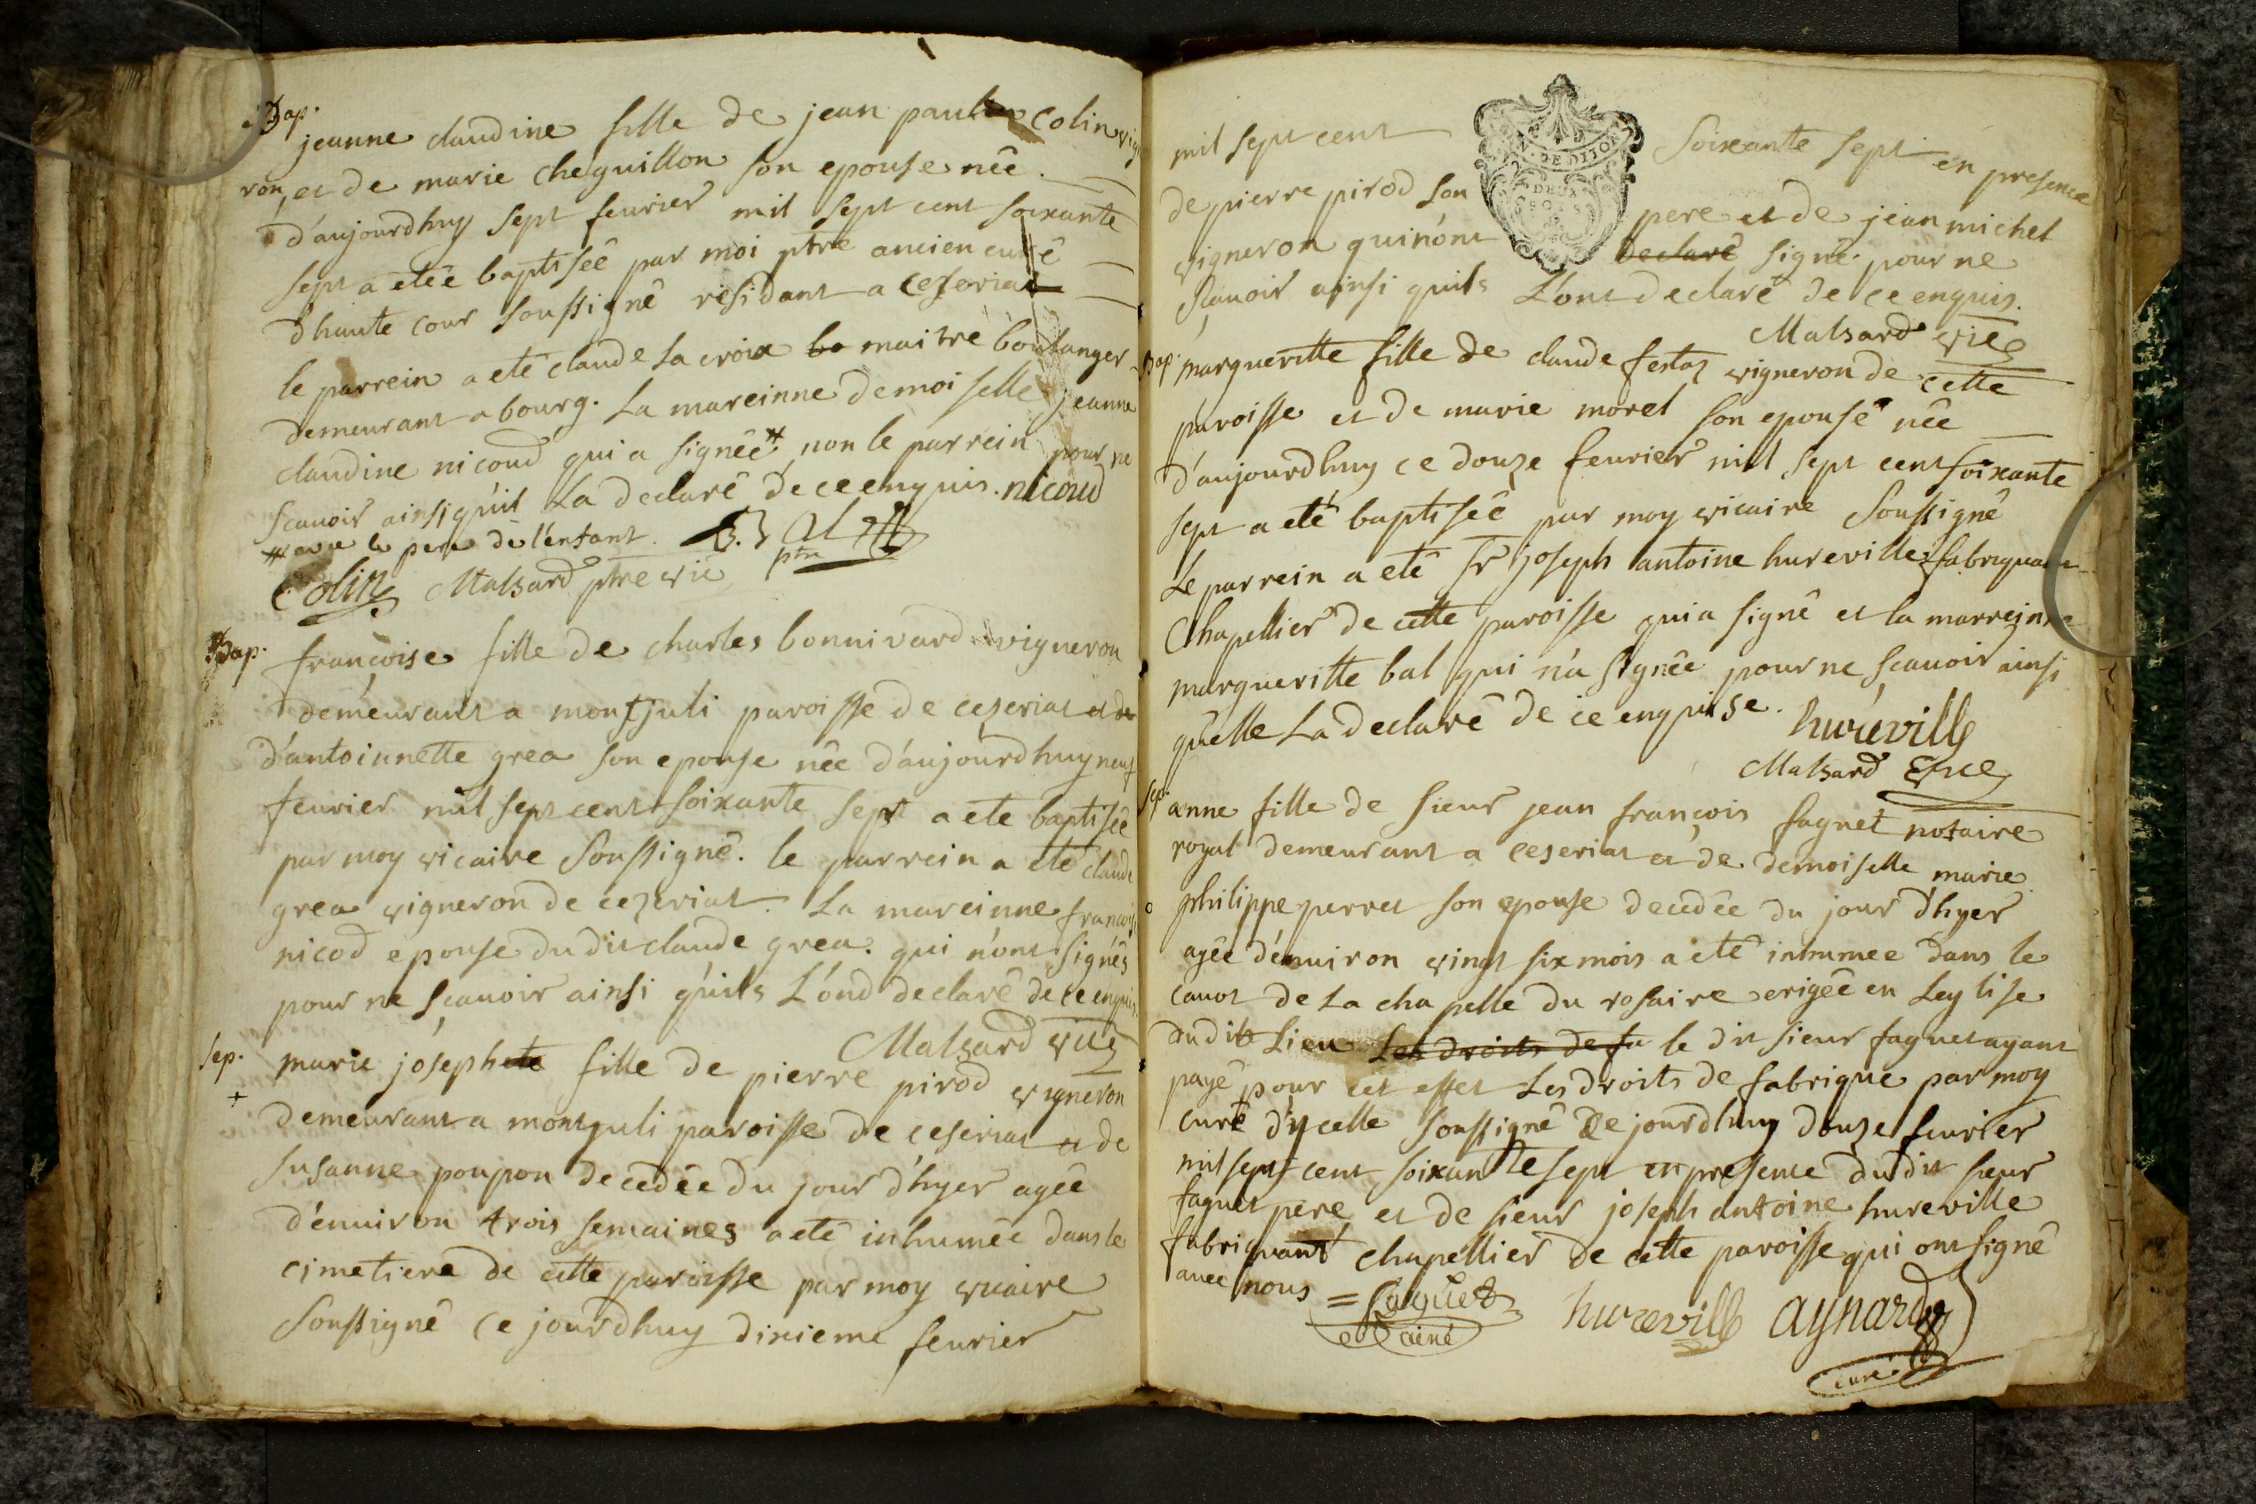 Bap.
jeanne claudine fille de jean paul Colin vig
ron, et de marie cheguillon son epouse née
d'aujourdhuy sept feurier mil sept cent soixante
sept a etée baptisée par moi ptre ancien curé
d'haute cour soussigné residant a Ceseriat
le parrein a eté claude la croix bo maitre boulanger
demeurant a bourg. La mareinne demoiselle jeanne
claudine nicoud qui a signée # non le parrein pour ne
scauoir ainsi qu'il La declaré de ce enquis. nicoud
# avec le pere de l'enfant.
ptre
Colin Malsard ptre vic
Bap.
françoise fille de charles bonnivard vigneron
demeurant a montjuli paroisse de ceseriat et de
d'antoinnette grea son epouse née d'aujourdhuy neuf
feurier mil sept cent soixante sept a ete baptisée
par moy vicaire Soussigné. le parrein a eté claude
grea vigneron de ceseriat. La mareinne francoise
nicod epouse du dit claude grea. qui n'ont signés
pour ne sçauoir ainsi qu'ils L'ond declaré de ce enquis.
Malsard vic
Sep.
+
marie josephete fille de pierre pirod vigneron
demeurant a montjuli paroisse de ceseriat et de
susanne poupon decedée du jour d'hyer agée
d'enuiron trois semaines a eté inhumée dans le
cimetiere de cette paroisse par moy vicaire
Soussigné Ce jourdhuy dixieme feurier
mil sept cent Soixante sept en presence
G.N. DE DIJON
DEUX SOLS
de pierre pirod son pere et de jean michel
vigneron qui n'ont declaré signé pour ne
sçauoir ainsi quils L'ont declaré de ce enquis.
Malsard vic
Bap.
margueritte fille de claude festaz vigneron de cette
paroisse et de marie morel son epouse née
d'aujourdhuy ce douze feurier mil sept cent soixante
sept a eté baptisée par moy vicaire Soussigné
Le parrein a eté Sr joseph antoine hureville fabriquant
Chapellier de cette paroisse qui a signé et la marreinne
margueritte bal qui n'a signée pour ne scauoir ainsi
quelle La declaré de ce enquise. hureville
Malsard vic
Sep.
anne fille de sieur jean françois faguet notaire
royal demeurant a ceseriat et de demoiselle marie
philippe perret son epouse decedée du jour d'hyer
agée d'enuiron vingt six mois a eté inhumee dans le
cauot de La chapelle du rosaire erigée en Leglise
dudit Lieu Les droits de fa le dit sieur faguet ayant
payé pour cet effet Les droits de fabrique par moy
curé d'ycelle soussigné Ce jourdhuy douze feurier
mil sept cent soixante sept en presence du dit sieur
faguet pere et de sieur joseph antoine hureville
fabriquant chapellier de cette paroisse qui ont signé
auec nous = faguet ainé hureville aynard
curé